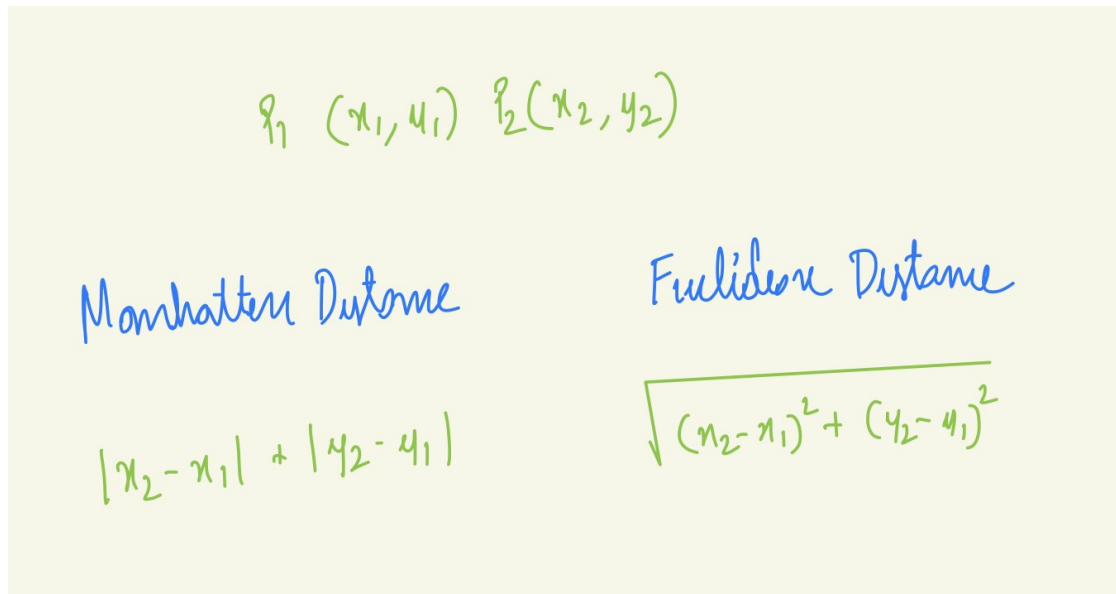 P₁ (x₁, y₁) P₂(x₂, y₂)
Manhatten Distance
Euclidean Distance
|x₂ - x₁| + |y₂ - y₁|
√((x₂ - x₁)² + (y₂ - y₁)²)